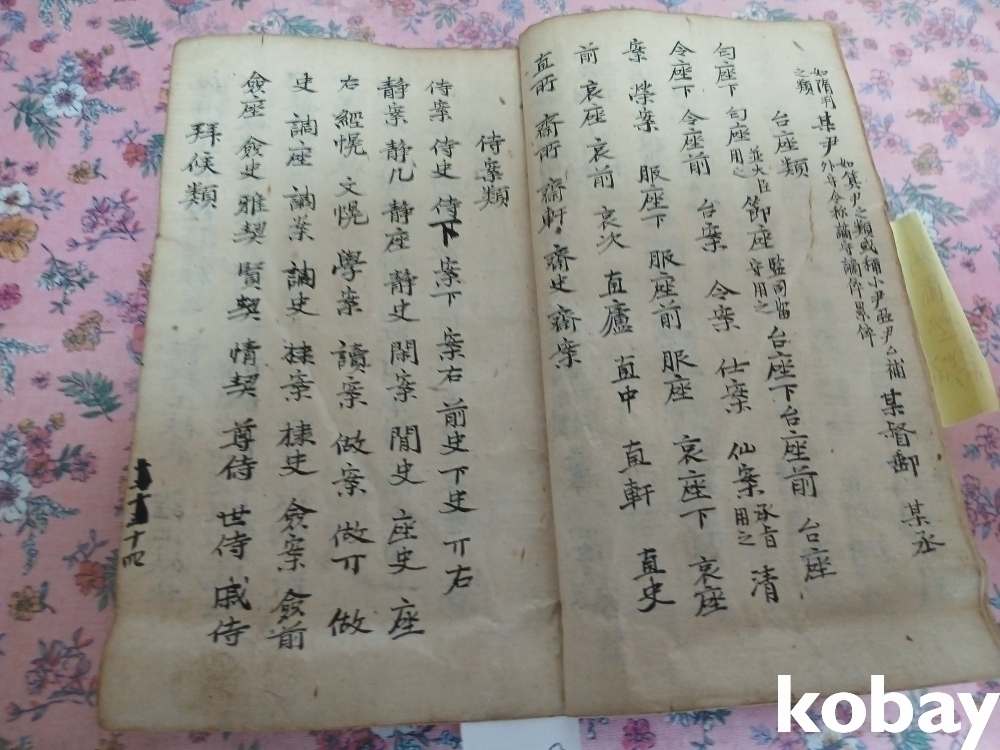 如隋州之類 某尹 如箕尹之類或稱小尹 某督郵 某丞
台座類
並大臣用之 節座 監司留守用之 台座下 台座前 台座
匀座下 匀座 台案 令案 仕案 仙案 承旨用之 清
令座下 令座前
案 榮案 服座下 服座前 服座 哀座下 哀座
前 哀座 哀前 哀次 直廬 直中 直軒 直史
直所 齋所 齋軒 齋史 齋案
侍案類
侍案 侍史 侍下 案下 案右 前史 下史 丌右
静案 静几 静座 静史 閑案 閒史 座史 座
右 經幌 文幌 學案 讀案 做案 做丌 做
史 調座 調案 調史 棣案 棣史 僉案 僉前
僉座 僉史 雅契 賢契 情契 尊侍 世侍 戚侍
拜候類
十四
kobay